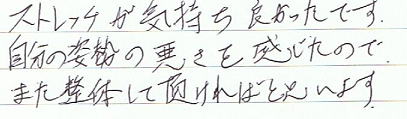 ストレッチが気持ち良かったです.
自分の姿勢の悪さを感じたので
また整体して頂ければと思います